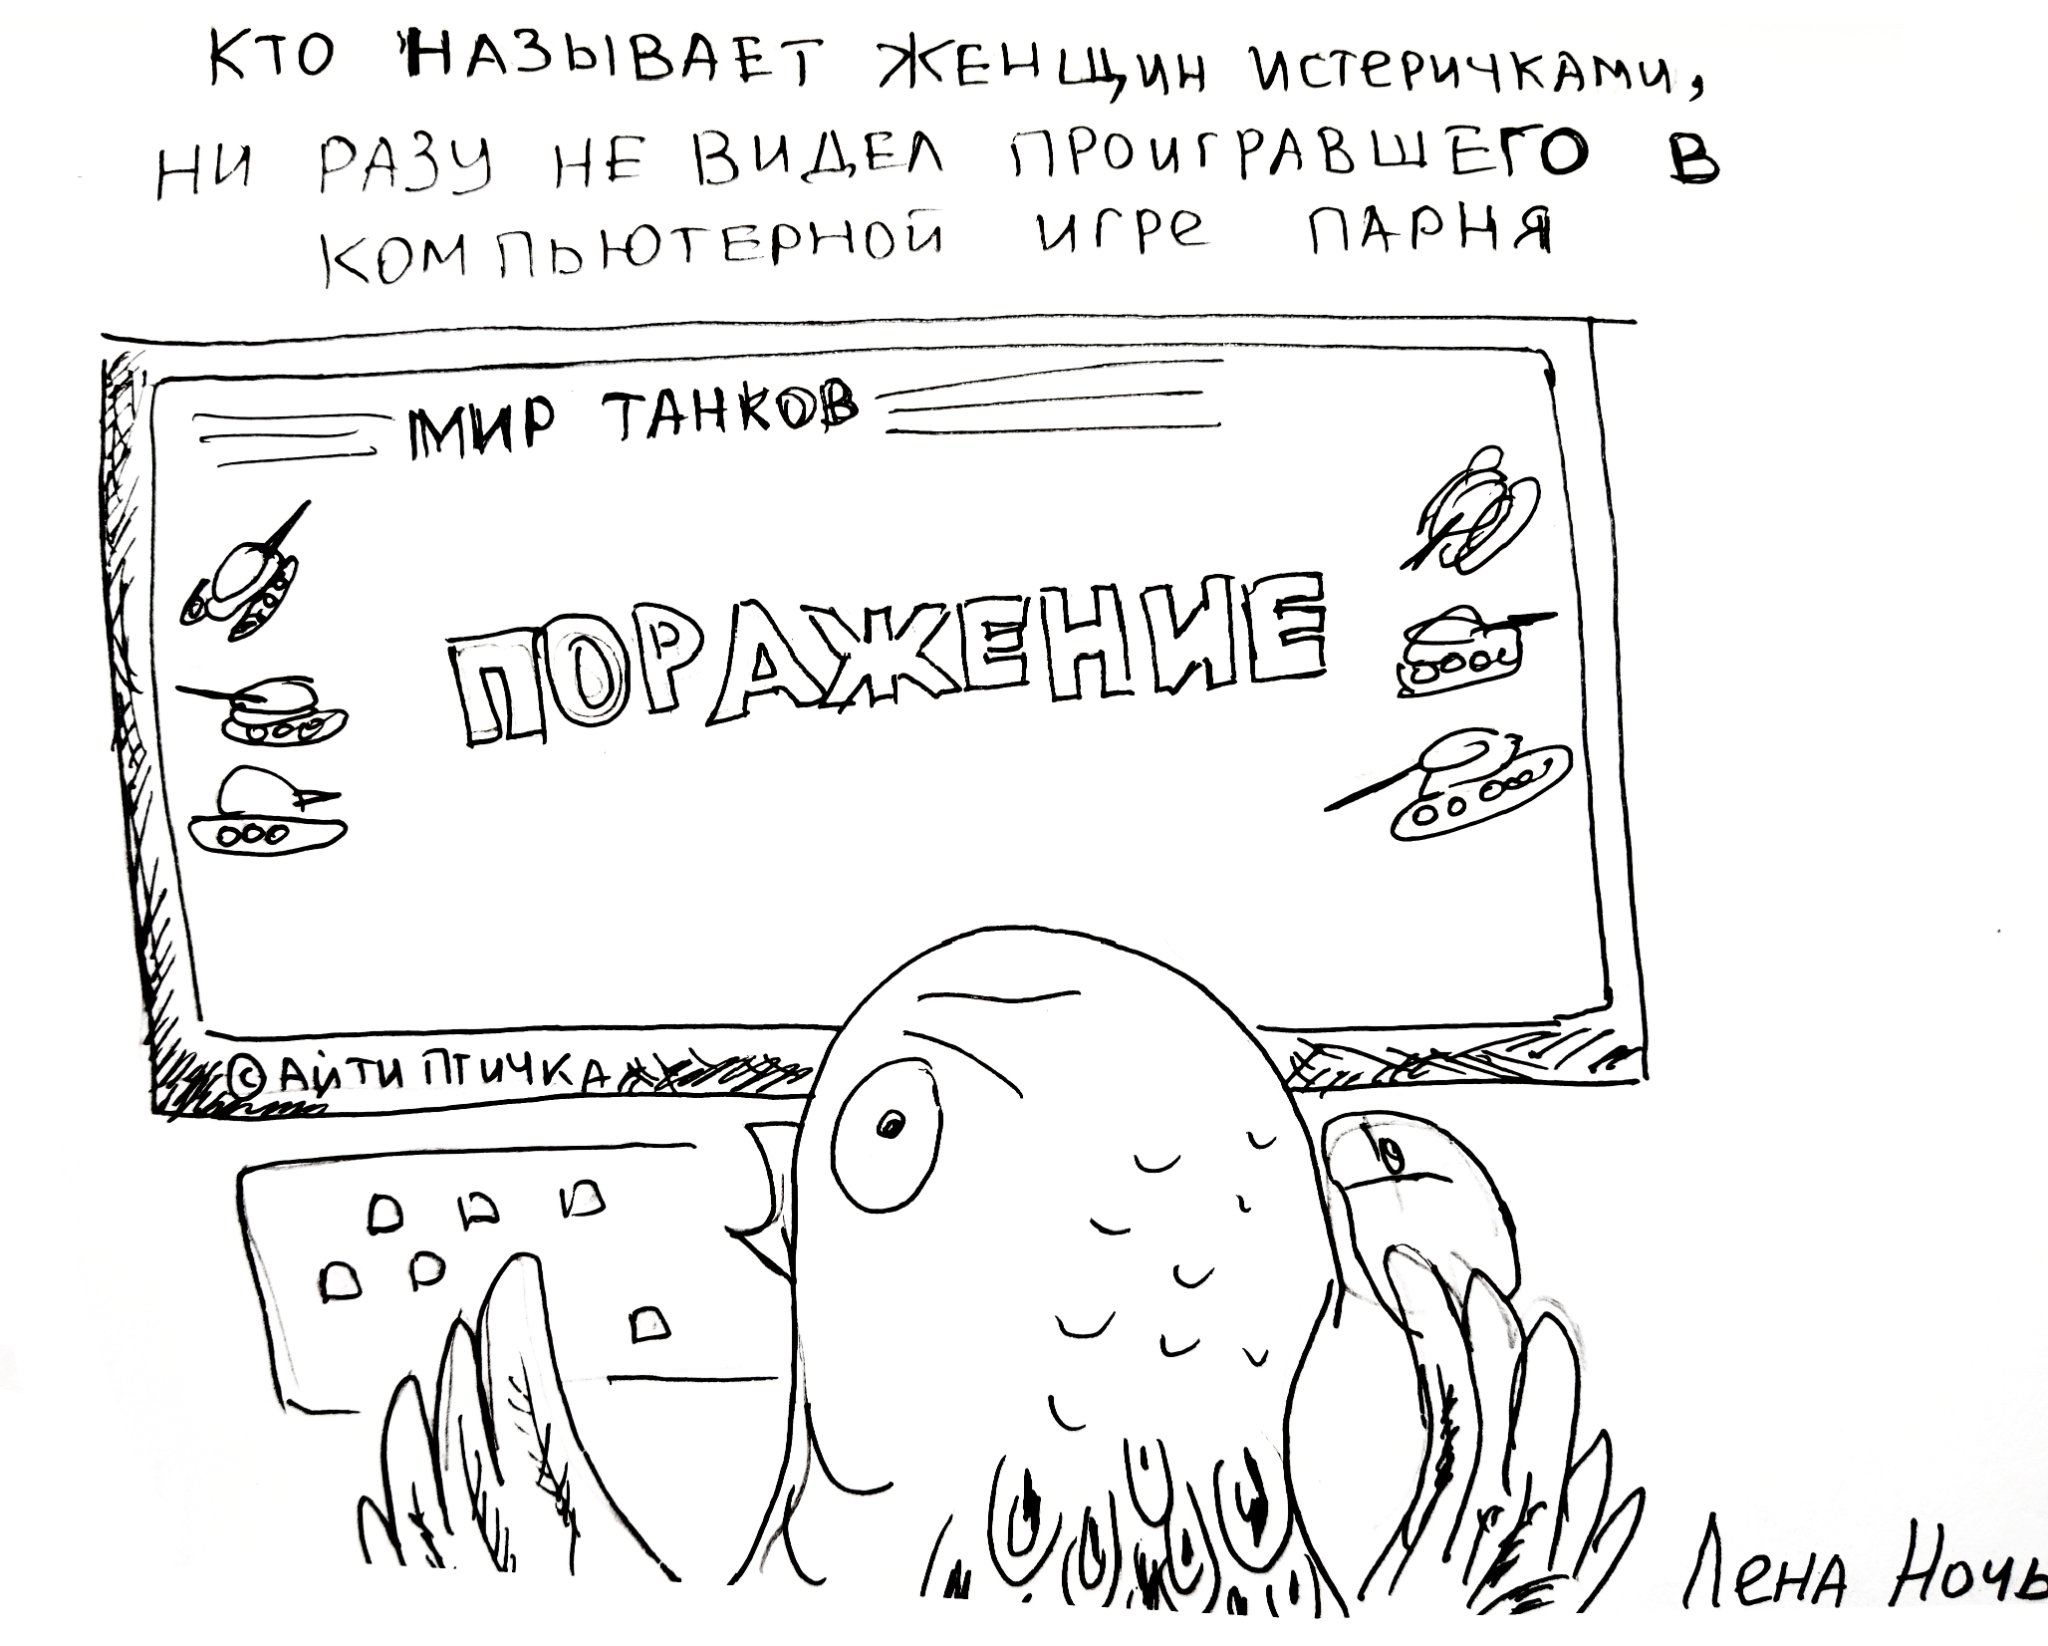 КТО НАЗЫВАЕТ ЖЕНЩИН ИСТЕРИЧКАМИ,
НИ РАЗУ НЕ ВИДЕЛ ПРОИГРАВШЕГО В
КОМПЬЮТЕРНОЙ ИГРЕ ПАРНЯ
МИР ТАНКОВ
ПОРАЖЕНИЕ
© АЙТИ ПТИЧКА
Лена Ночь